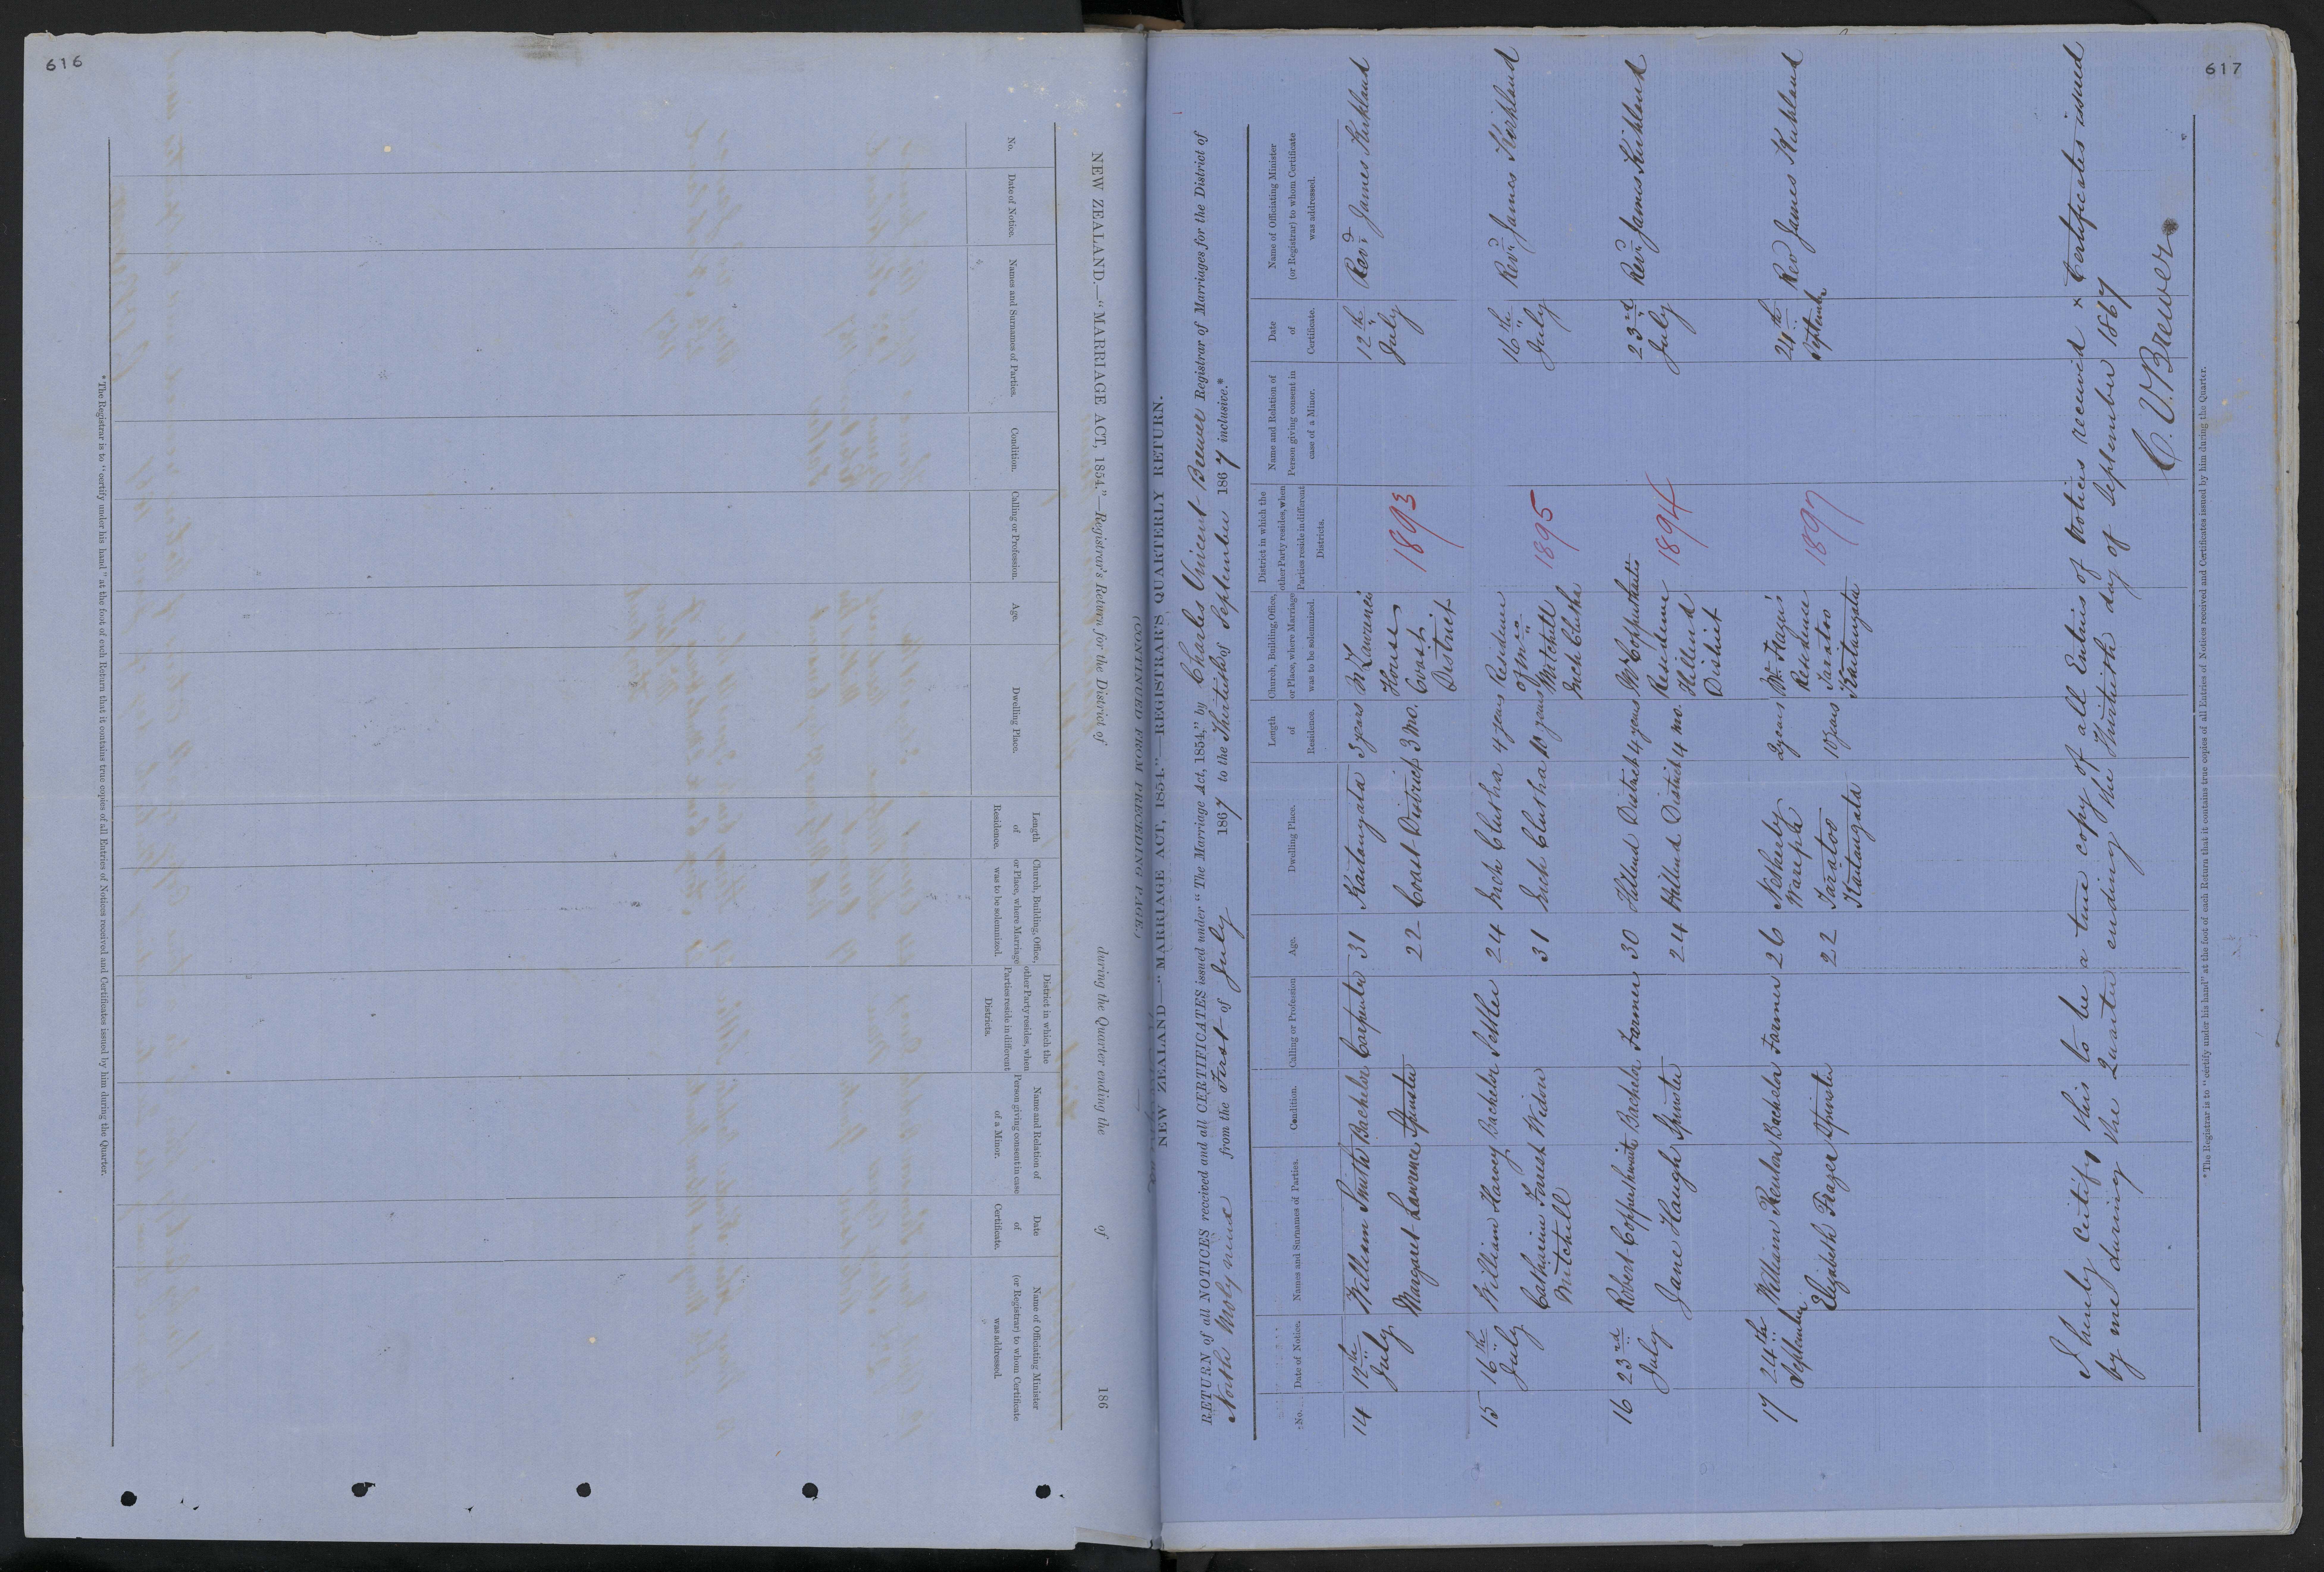 616
NEW ZEALAND.—"MARRIAGE ACT, 1854."—Registrar's Return for the District of during the Quarter ending the of 186
No.
Date of Notice.
Names and Surnames of Parties.
Condition.
Calling or Profession.
Age.
Dwelling Place.
Length
of
Residence.
Church, Building, Office,
or Place, where Marriage
was to be solemnized.
District in which the
other Party resides, when
Parties reside in different
Districts.
Name and Relation of
Person giving consent in case
of a Minor.
Date
of
Certificate.
Name of Officiating Minister
(or Registrar) to whom Certificate
was addressed.
*The Registrar is to "certify under his hand" at the foot of each Return that it contains true copies of all Entries of Notices received and Certificates issued by him during the Quarter.
(CONTINUED FROM PRECEDING PAGE.)
617
NEW ZEALAND—"MARRIAGE ACT, 1854."—REGISTRAR'S QUARTERLY RETURN.
RETURN of all NOTICES received and all CERTIFICATES issued under "The Marriage Act, 1854," by Charles Vincent Brewer Registrar of Marriages for the District of
North Molyneux from the First of July 1867 to the Thirtieth of September 1867 inclusive.*
No.
Date of Notice.
Names and Surnames of Parties.
Condition.
Calling or Profession
Age.
Dwelling Place.
Length
of
Residence.
Church, Building, Office,
or Place, where Marriage
was to be solemnized.
District in which the
other Party resides, when
Parties reside in different
Districts.
Name and Relation of
Person giving consent in
case of a Minor.
Date
of
Certificate.
Name of Officiating Minister
(or Registrar) to whom Certificate
was addressed.
14 12th William Smith Bachelor Carpenter 31 Kaitangata 3 years Mr Lawrence's 12th Revd James Kirkland
July Margaret Lawrence Spinster 22 Coast District 3 mo. House 1893 July
Coast
District
15 16th William Harvey Bachelor Settler 24 Inch Clutha 4 years Residence 16th Revd James Kirkland
July Catharine Forrest Widow 31 Inch Clutha 10 years of Mrs 1895 July
Mitchell Mitchell
Inch Clutha
16 23rd Robert Copperthwaite Bachelor Farmer 30 Hillend District 4 years Mr Copperthwaite's 23rd Revd James Kirkland
July Jane Haugh Spinster 24 Hillend District 4 mo. Residence 1894 July
Hillend
District
17 24th William Renton Bachelor Farmer 26 Netherby 2 years Mr. Frazer's 24th Rev James Kirkland
September Warepa Residence September
Elizabeth Frazer Spinster 22 Taratoo 10 years Taratoo 1897
Kaitangata Kaitangata
I hereby certify this to be a true copy of all Entries of Notices received & Certificates issued
by me during the Quarter ending the Thirtieth day of September 1867
C. V. Brewer
*The Registrar is to "certify under his hand" at the foot of each Return that it contains true copies of all Entries of Notices received and Certificates issued by him during the Quarter.